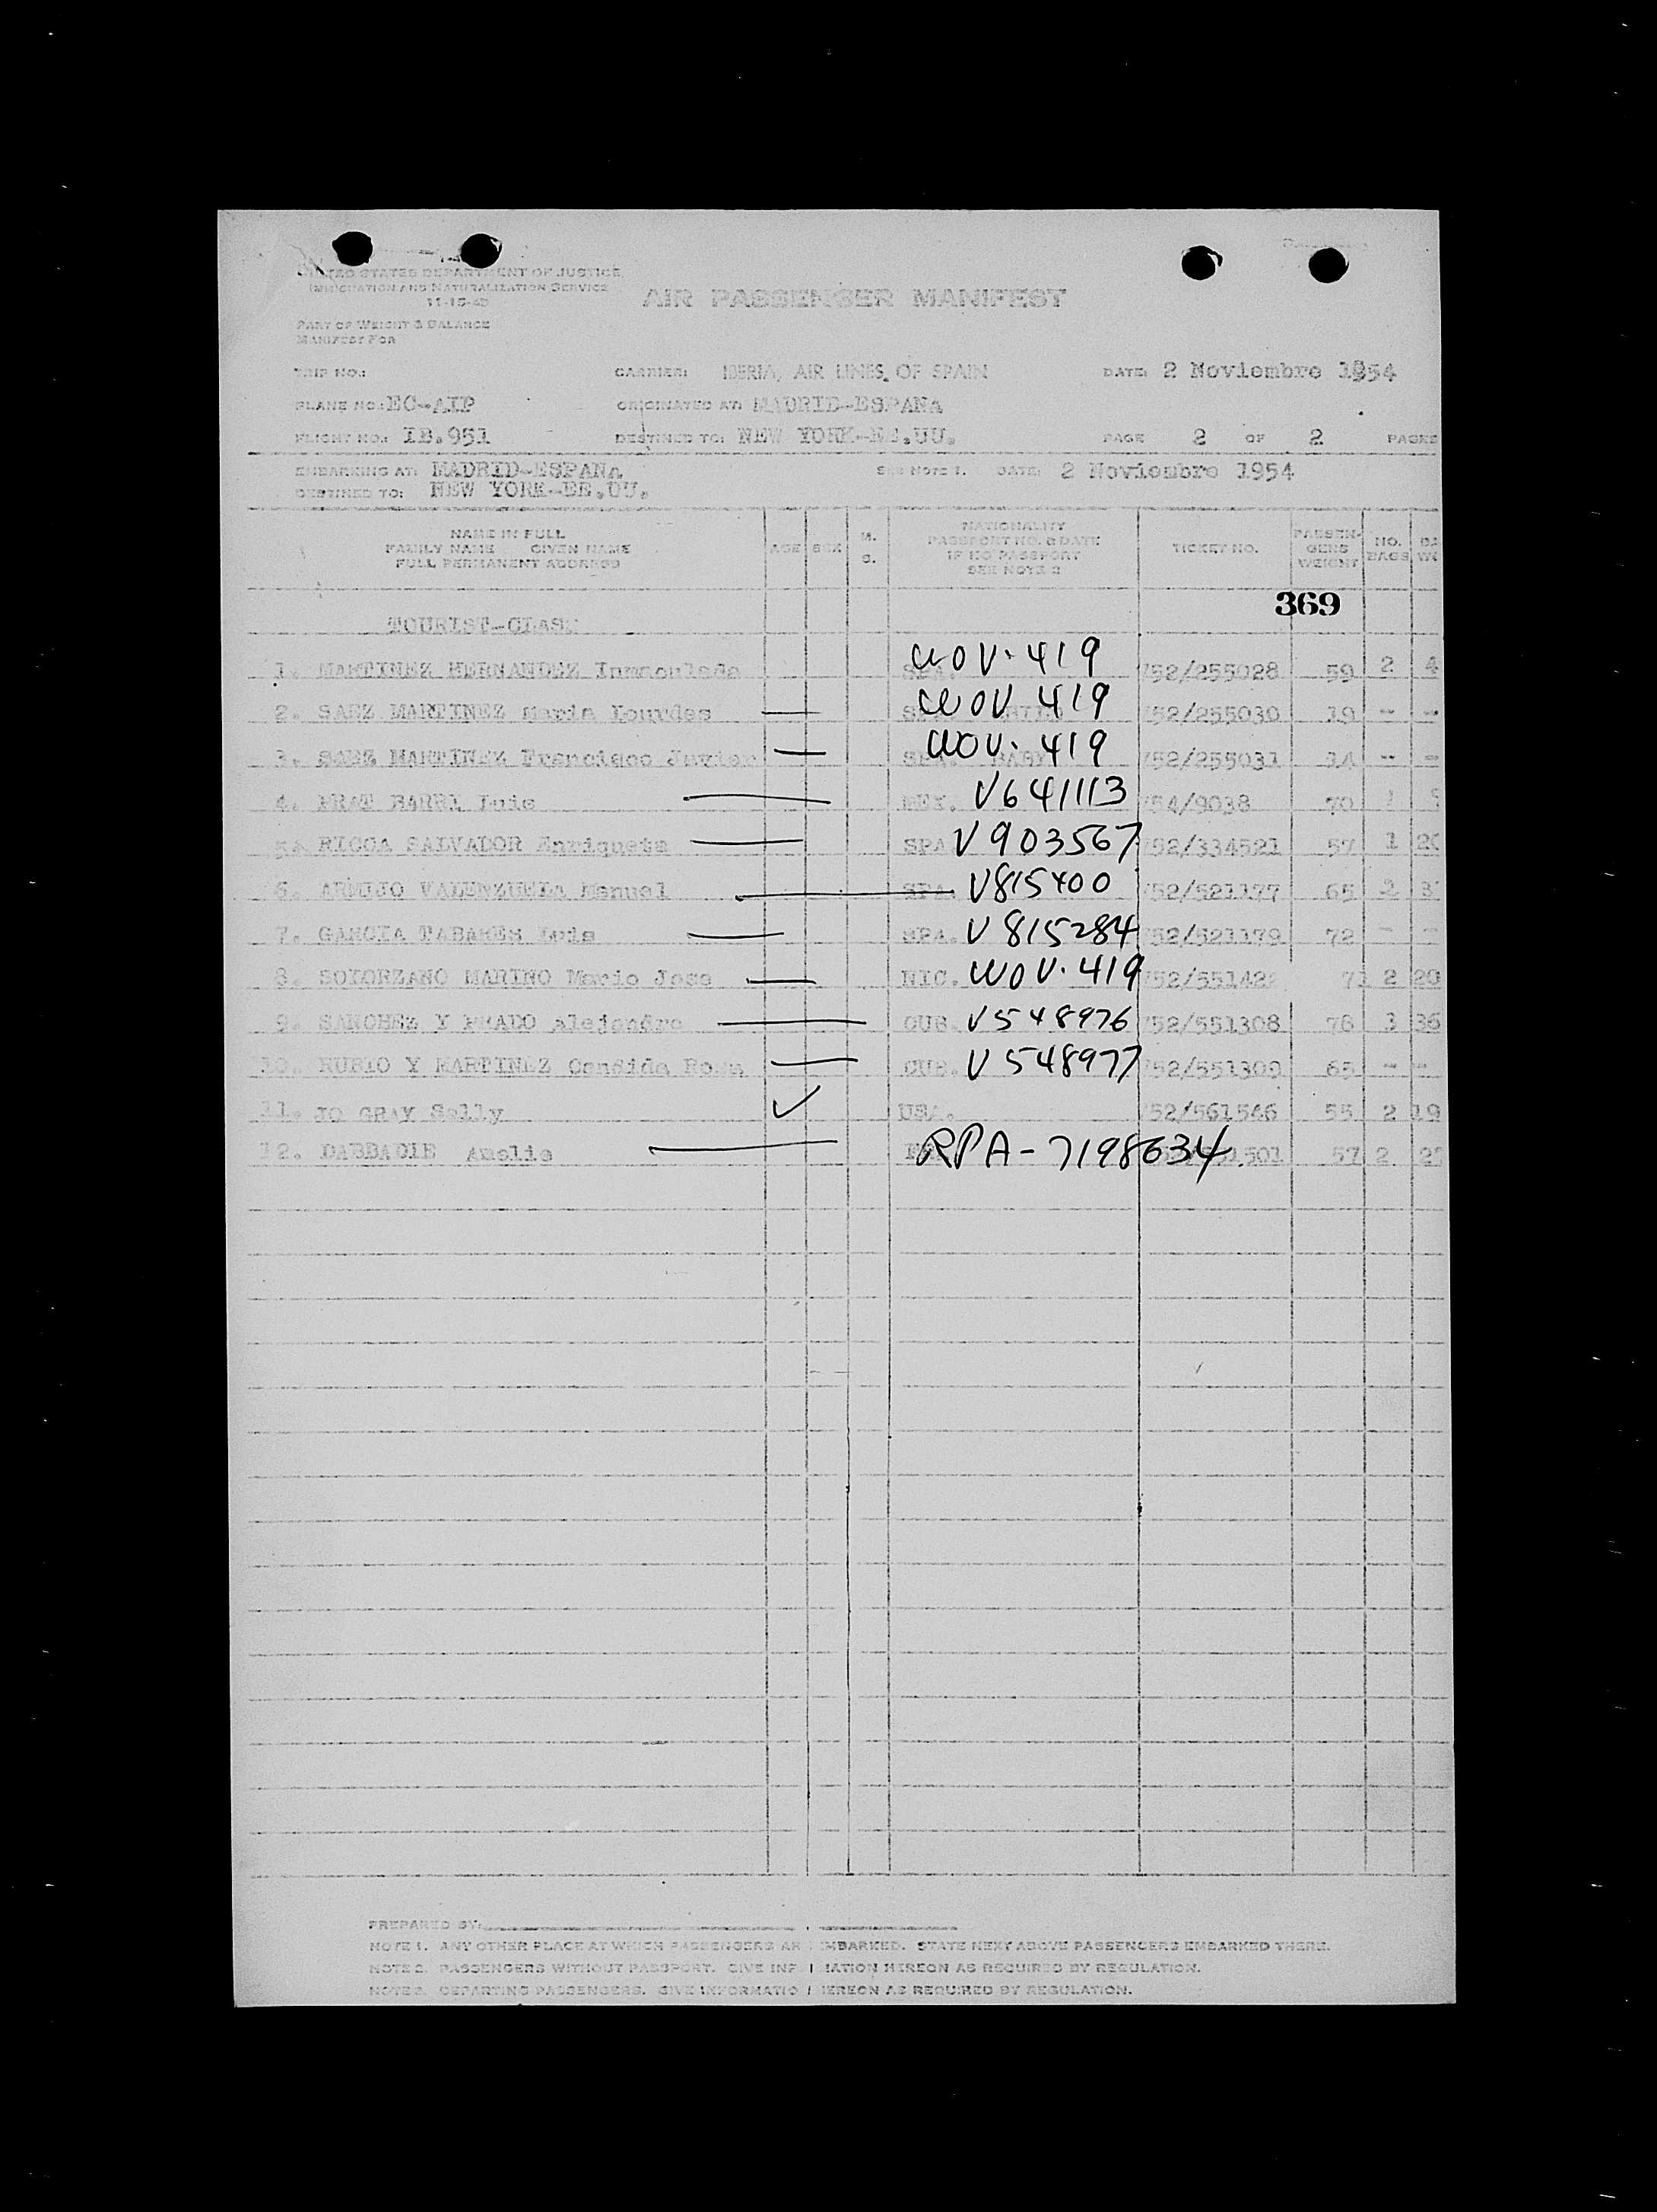 UNITED STATES DEPARTMENT OF JUSTICE
IMMIGRATION AND NATURALIZATION SERVICE
AIR PASSENGER MANIFEST
PART OF WEIGHT & BALANCE
MANIFEST FOR
TRIP NO.: CARRIER: IBERIA, AIR LINES, OF SPAIN DATE: 2 Noviembre 1954
PLANE NO.: EC-AIP ORIGINATED AT: MADRID-ESPANA
FLIGHT NO.: IB.951 DESTINED TO: NEW YORK-EE.UU. PAGE 2 OF 2 PAGES
EMBARKING AT: MADRID-ESPANA SEE NOTE 1. DATE: 2 Noviembre 1954
DESTINED TO: NEW YORK-EE.UU.
NAME IN FULL
FAMILY NAME GIVEN NAME
FULL PERMANENT ADDRESS
AGE SEX M. S.
NATIONALITY
PASSPORT NO. & DATE
IF NO PASSPORT
SEE NOTE 2
TICKET NO.
PASSEN-
GERS
WEIGHT
NO.
BAGS
369
TOURIST-CLASS
1. MARTINEZ HERNANDEZ Inmaculada WOV. 419 752/255028 59 2 4
2. SAEZ MARTINEZ Maria Lourdes WOV 419 752/255030 19 - -
3. SAEZ MARTINEZ Francisco Javier WOV. 419 752/255031 14 - -
4. PRAT BARRI Luis MEX. V641113 754/9038 70
5. RICOA SALVADOR Enriqueta SPA V903567 752/334521 57 1 20
6. ARMIJO VALENZUELA Manuel SPA. V815400 752/521177 65 2
7. GARCIA TABARES Luis SPA. V815284 752/521179 72 - -
8. SOLORZANO MARINO Mario Jose NIC. WOV. 419 752/55142 71 2 20
9. SANCHEZ Y PRADO Alejandro CUB. V548976 752/551308 76 3 36
10. RUBIO Y MARTINEZ Candida Rosa CUB. V548977 752/551309 65 - -
11. JO GRAY Sally ✓ USA. 752/561546 55 2 19
12. DABBADIE Amelie RPA-7198634 1501 57 2
PREPARED BY:
NOTE 1. ANY OTHER PLACE AT WHICH PASSENGERS AR MBARKED. STATE NEXT ABOVE PASSENGERS EMBARKED THERE.
NOTE 2. PASSENGERS WITHOUT PASSPORT. GIVE INF MATION HEREON AS REQUIRED BY REGULATION.
NOTE 3. DEPARTING PASSENGERS. GIVE INFORMATIO HEREON AS REQUIRED BY REGULATION.